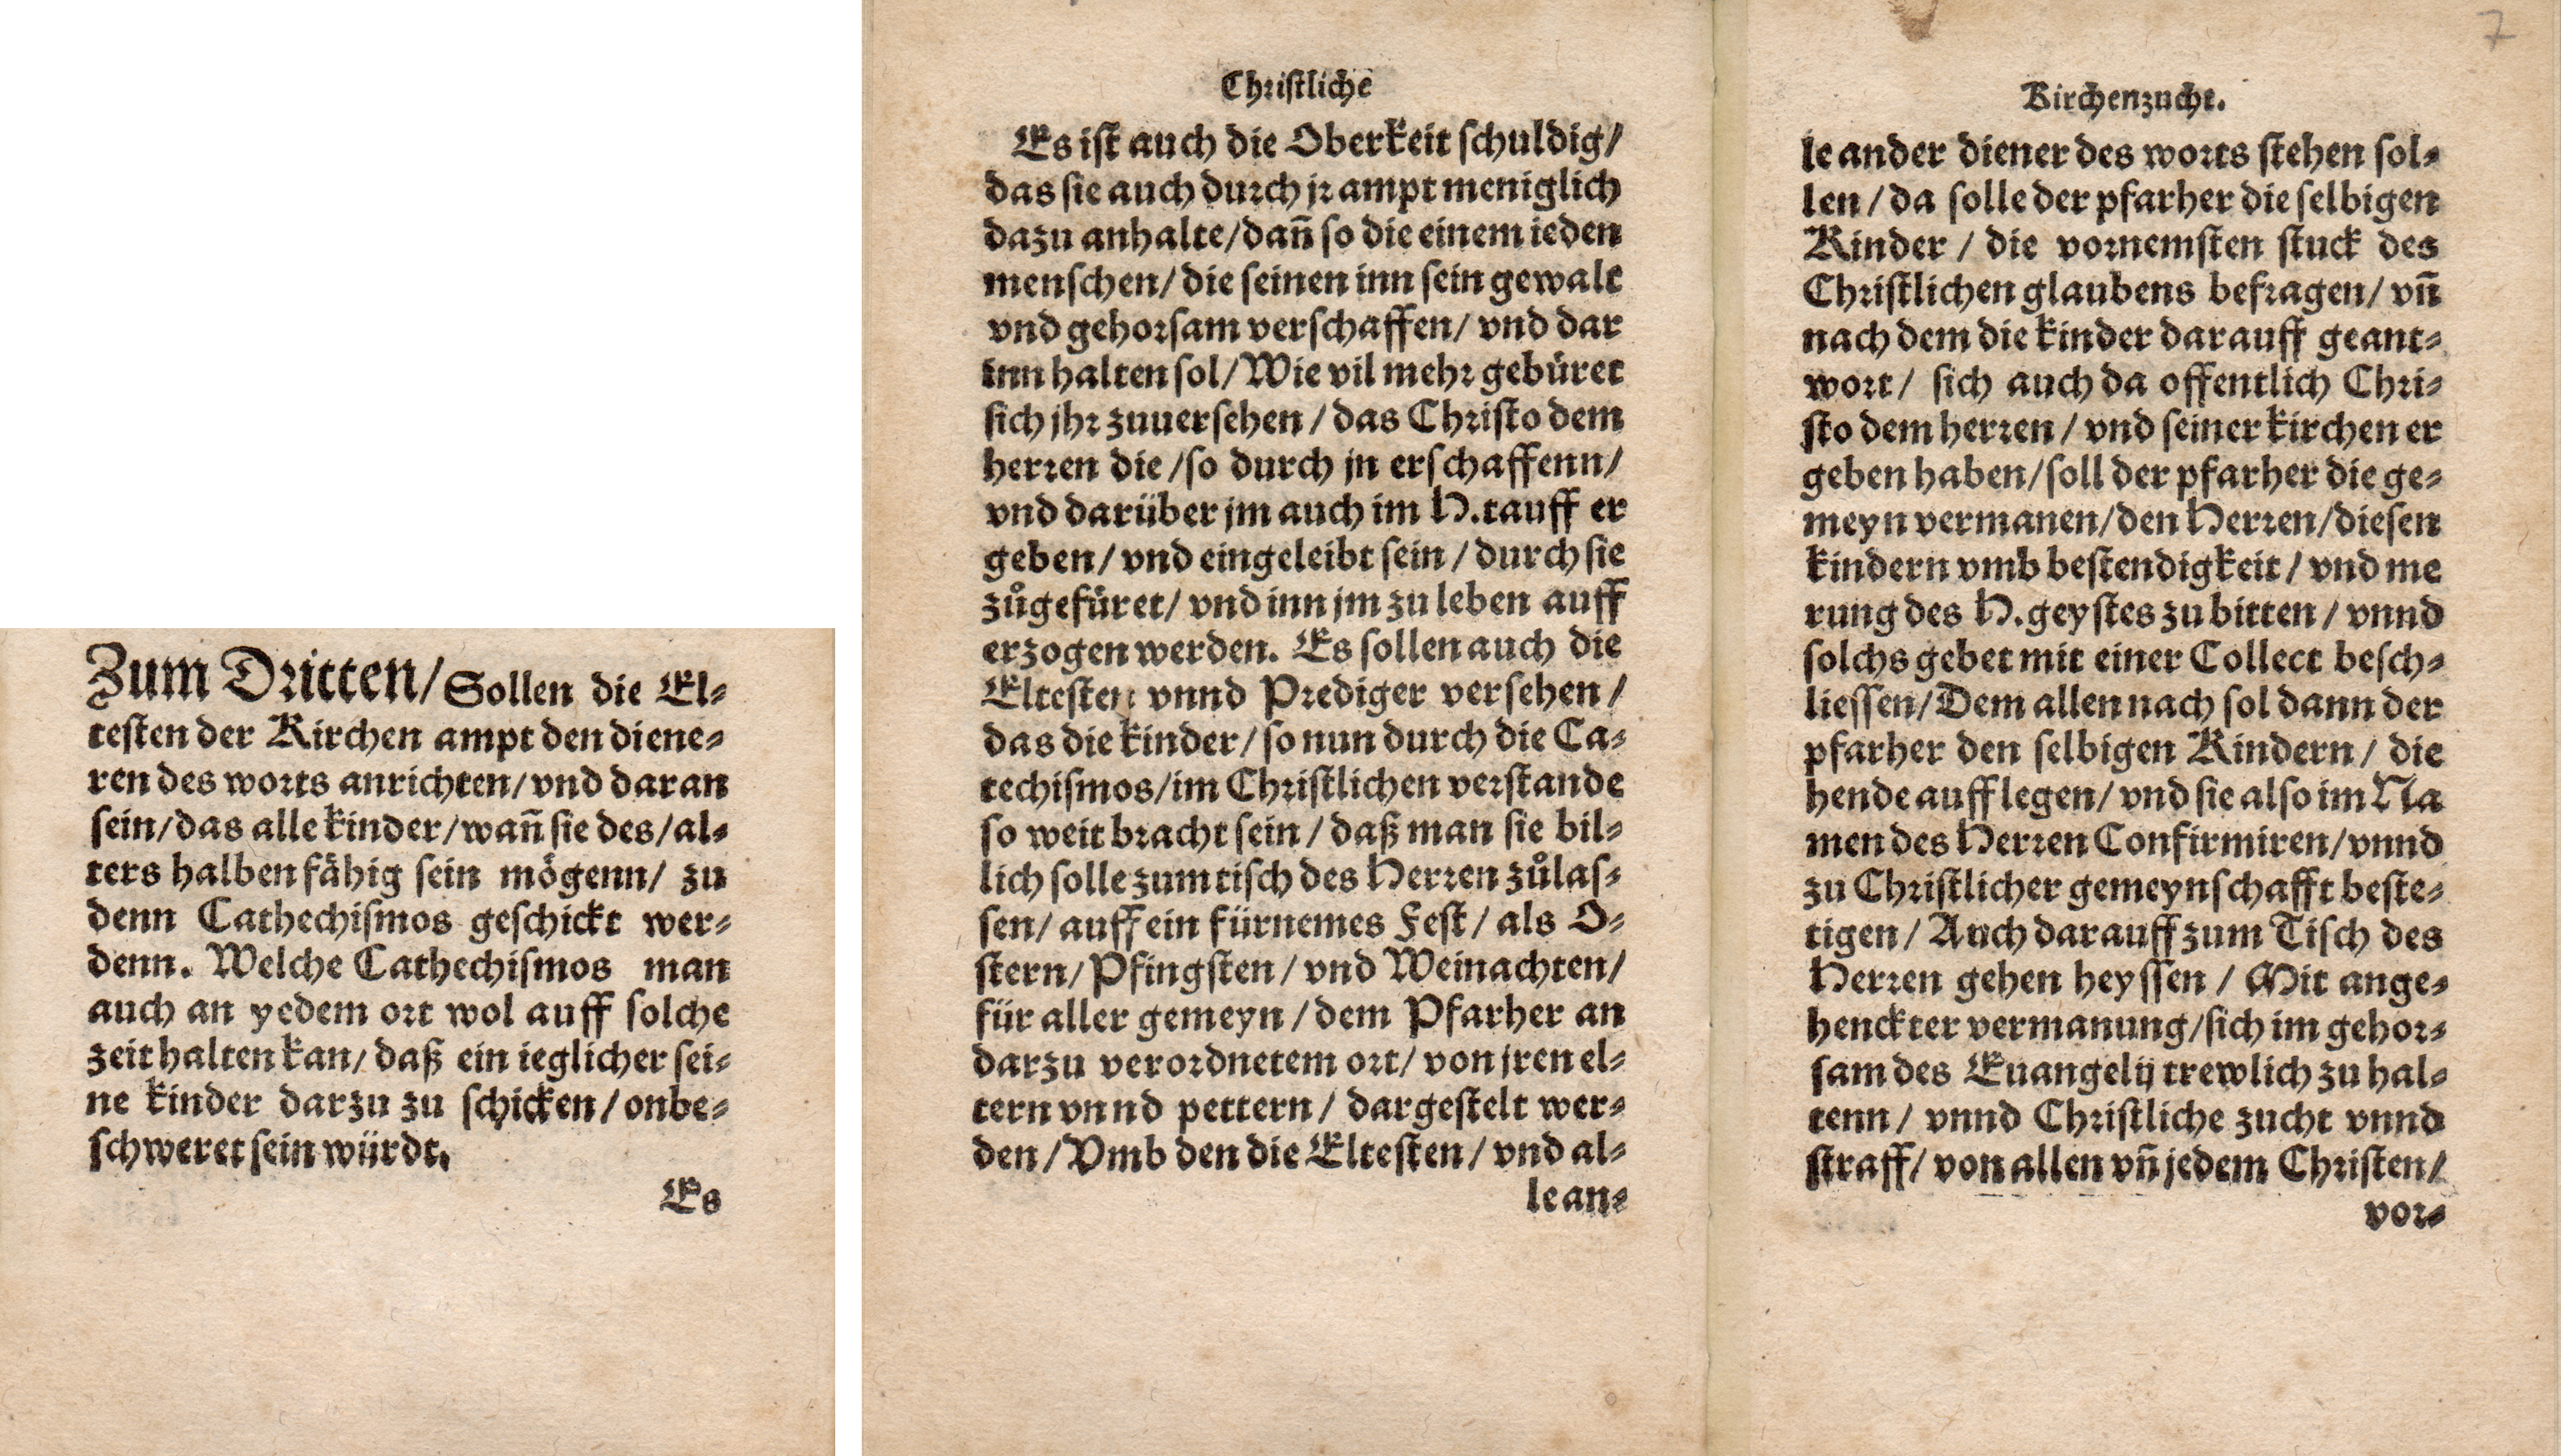 Zum Dritten/ Sollen die El⸗
testen der Kirchen ampt den diene⸗
ren des worts anrichten/ vnd daran
sein/das alle kinder/wañ sie des/al⸗
ters halben fähig sein mögenn/ zu
denn Cathechismos geschickt wer⸗
denn. Welche Cathechismos man
auch an yedem ort wol auff solche
zeit halten kan/ daß ein ieglicher sei⸗
ne kinder darzu zu schicken/onbe⸗
schweret sein würdt.
Es
Christliche
Es ist auch die Oberkeit schuldig/
das sie auch durch jr ampt meniglich
dazu anhalte/dañ so die einem ieden
menschen/ die seinen inn sein gewalt
vnd gehorsam verschaffen/ vnd dar
inn halten sol/Wie vil mehr gebüret
sich jhr zuuersehen/das Christo dem
herren die/so durch jn erschaffenn/
vnd darüber jm auch im H.tauff er
geben/vnd eingeleibt sein/durch sie
zůgefüret/ vnd inn jm zu leben auff
erzogen werden. Es sollen auch die
Eltesten vnnd Prediger versehen/
das die kinder/so nun durch die Ca⸗
techismos/im Christlichen verstande
so weit bracht sein/daß man sie bil⸗
lich solle zum tisch des Herren zůlas⸗
sen/ auff ein fürnemes Fest/ als O⸗
stern/Pfingsten/vnd Weinachten/
für aller gemeyn/dem Pfarher an
darzu verordnetem ort/ von jren el⸗
tern vnnd pettern/ dargestelt wer⸗
den/Vmb den die Eltesten/vnd al⸗
le an⸗
7
Kirchenzucht.
le ander diener des worts stehen sol⸗
len/da solle der pfarher die selbigen
Kinder/ die vornemsten stuck des
Christlichen glaubens befragen/ vñ
nach dem die kinder darauff geant⸗
wort/ sich auch da offentlich Chri⸗
sto dem herren/vnd seiner kirchen er
geben haben/soll der pfarher die ge⸗
meyn vermanen/den Herren/diesen
kindern vmb bestendigkeit/vnd me
rung des H.geystes zu bitten/vnnd
solchs gebet mit einer Collect besch⸗
liessen/Dem allen nach sol dann der
pfarher den selbigen Kindern/ die
hende auff legen/vnd sie also im Na
men des Herren Confirmiren/vnnd
zu Christlicher gemeynschafft beste⸗
tigen/Auch darauff zum Tisch des
Herren gehen heyssen/Mit ange⸗
henckter vermanung/sich im gehor⸗
sam des Euangelij trewlich zu hal⸗
tenn/ vnnd Christliche zucht vnnd
straff/ von allen vñ jedem Christen/
vor⸗